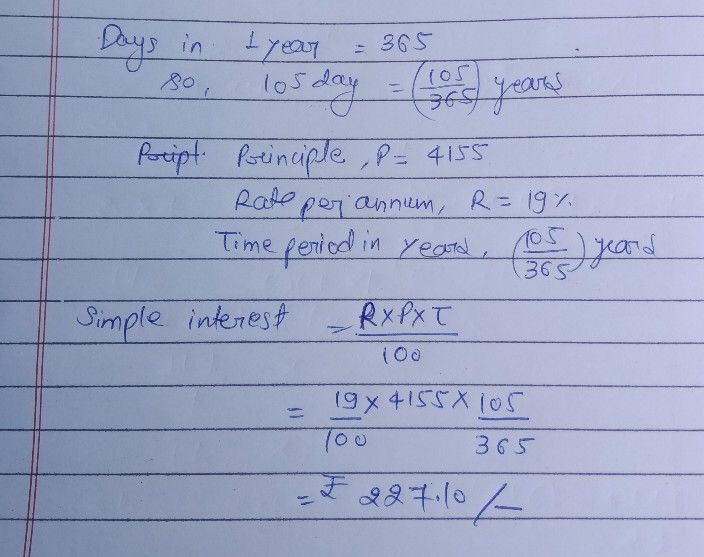 Days in 1 year = 365
so, 105 day = (105/365) years
Principle, P = 4155
Rate per annum, R = 19%
Time period in years, (105/365) years
Simple interest = R×P×T/100
= 19/100 × 4155 × 105/365
= ₹ 227.10/-